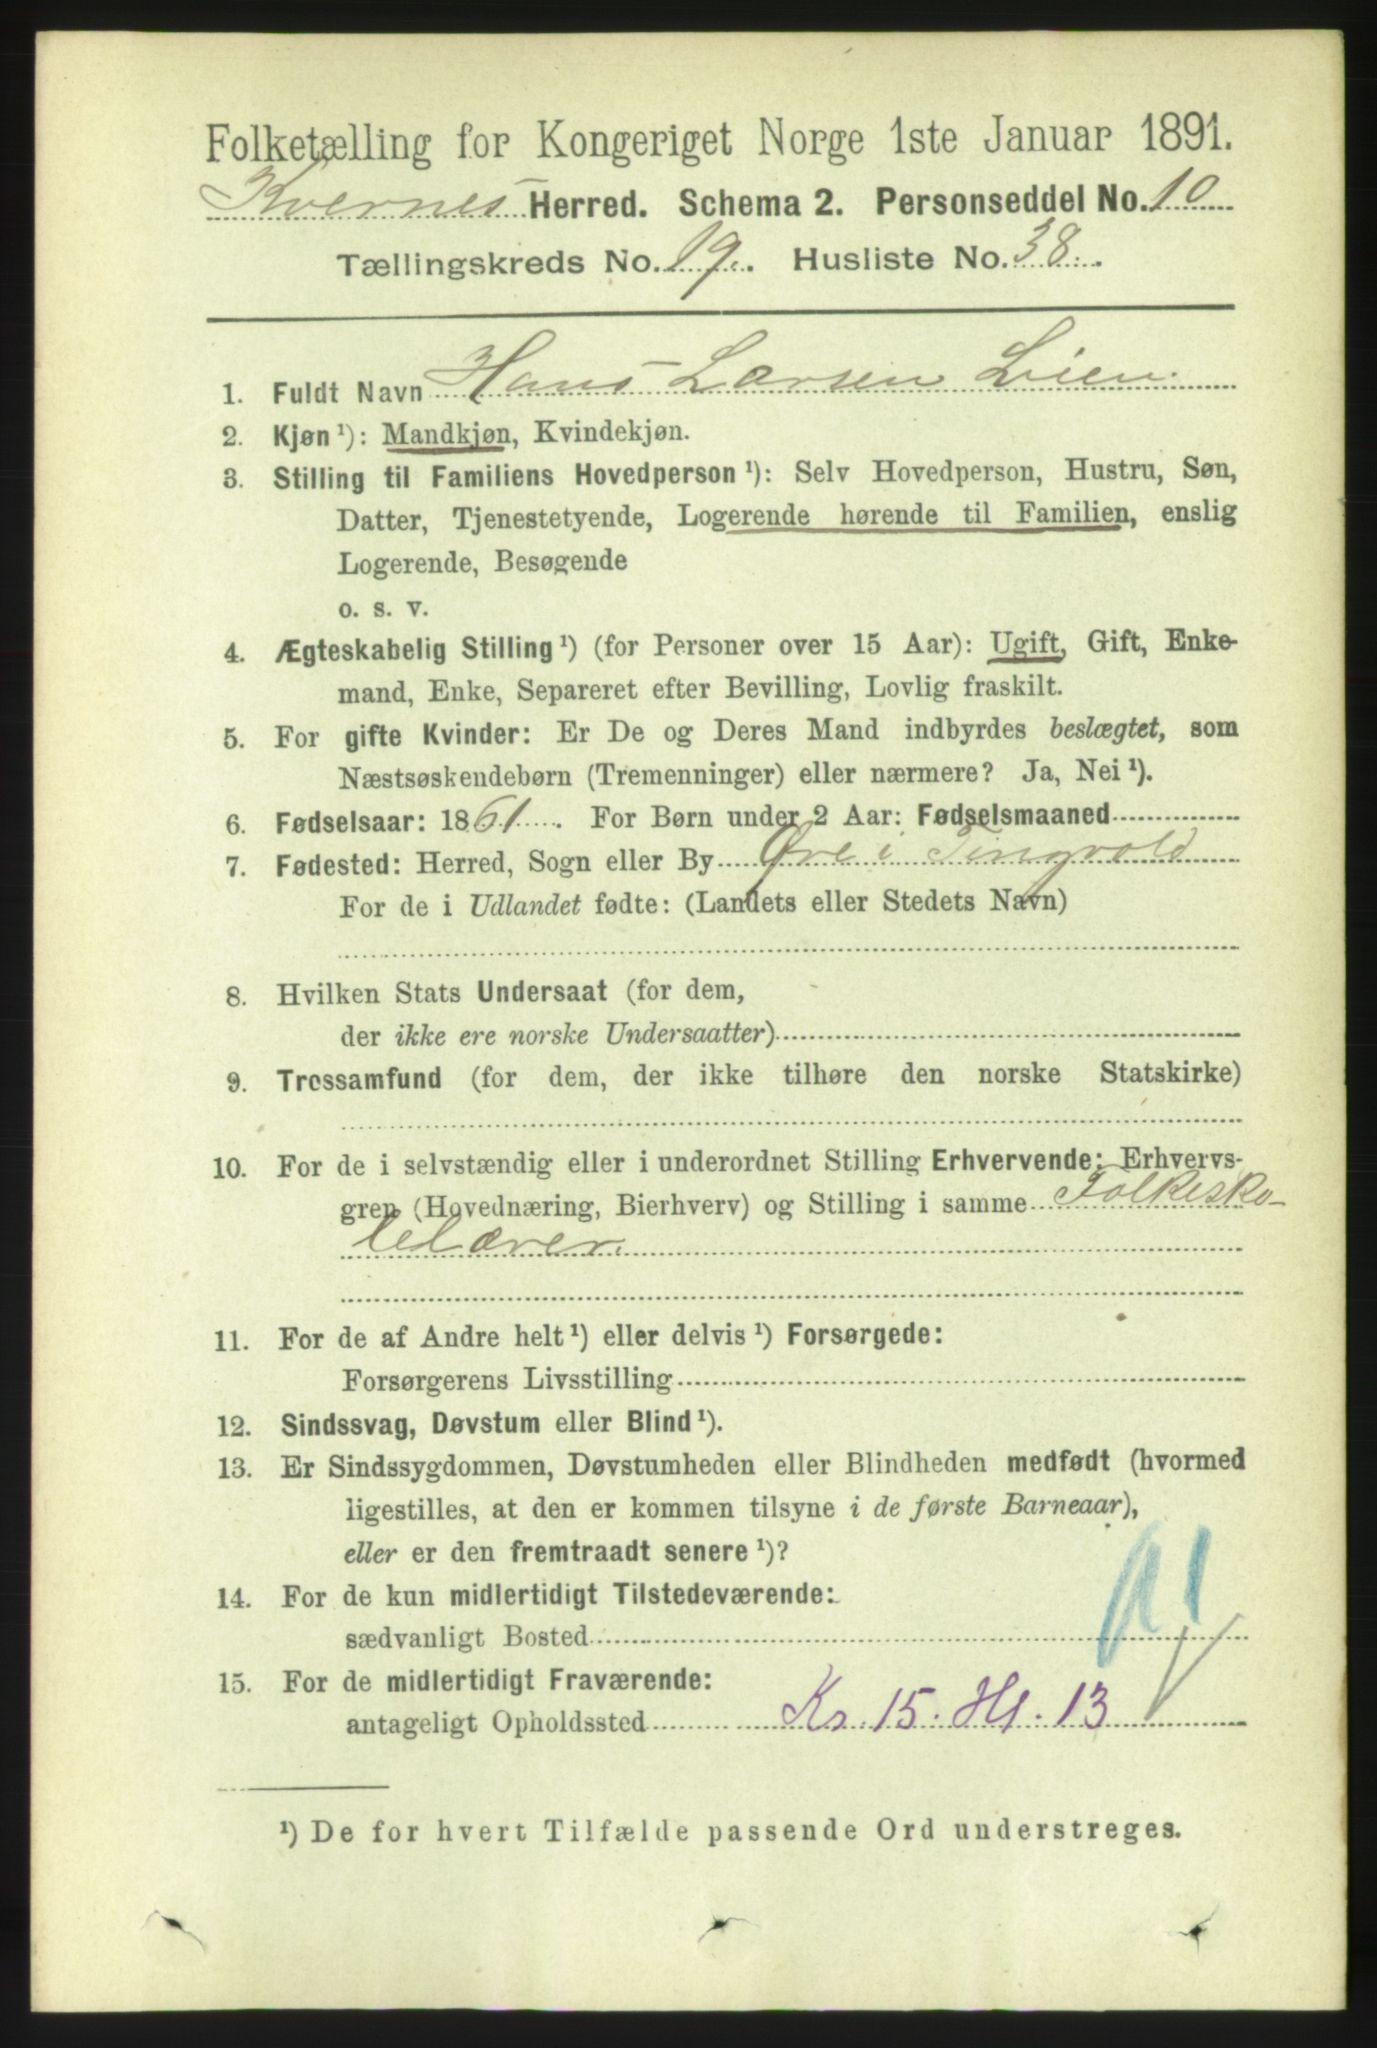 Folketælling for Kongeriget Norge 1ste Januar 1891.
Kvernes Herred. Schema 2. Personseddel No. 10
Tællingskreds No. 19. Husliste No. 38.
1. Fuldt Navn Hans Larsen Lien.
2. Kjøn ¹): Mandkjøn, Kvindekjøn.
3. Stilling til Familiens Hovedperson ¹): Selv Hovedperson, Hustru, Søn,
Datter, Tjenestetyende, Logerende hørende til Familien, enslig
Logerende, Besøgende
o. s. v.
4. Ægteskabelig Stilling ¹) (for Personer over 15 Aar): Ugift, Gift, Enke-
mand, Enke, Separeret efter Bevilling, Lovlig fraskilt.
5. For gifte Kvinder: Er De og Deres Mand indbyrdes beslægtet, som
Næstsøskendebørn (Tremenninger) eller nærmere? Ja, Nei ¹).
6. Fødselsaar: 1861. For Børn under 2 Aar: Fødselsmaaned
7. Fødested: Herred, Sogn eller By Øre i Tingvold
For de i Udlandet fødte: (Landets eller Stedets Navn)
8. Hvilken Stats Undersaat (for dem,
der ikke ere norske Undersaatter)
9. Trossamfund (for dem, der ikke tilhøre den norske Statskirke)
10. For de i selvstændig eller i underordnet Stilling Erhvervende: Erhvervs-
gren (Hovednæring, Bierhverv) og Stilling i samme Folkesko-
lelærer.
11. For de af Andre helt ¹) eller delvis ¹) Forsørgede:
Forsørgerens Livsstilling
12. Sindssvag, Døvstum eller Blind ¹).
13. Er Sindssygdommen, Døvstumheden eller Blindheden medfødt (hvormed
ligestilles, at den er kommen tilsyne i de første Barneaar),
eller er den fremtraadt senere ¹)?
14. For de kun midlertidigt Tilstedeværende:
sædvanligt Bosted
15. For de midlertidigt Fraværende:
antageligt Opholdssted Kr. 15. Hl. 13
¹) De for hvert Tilfælde passende Ord understreges.